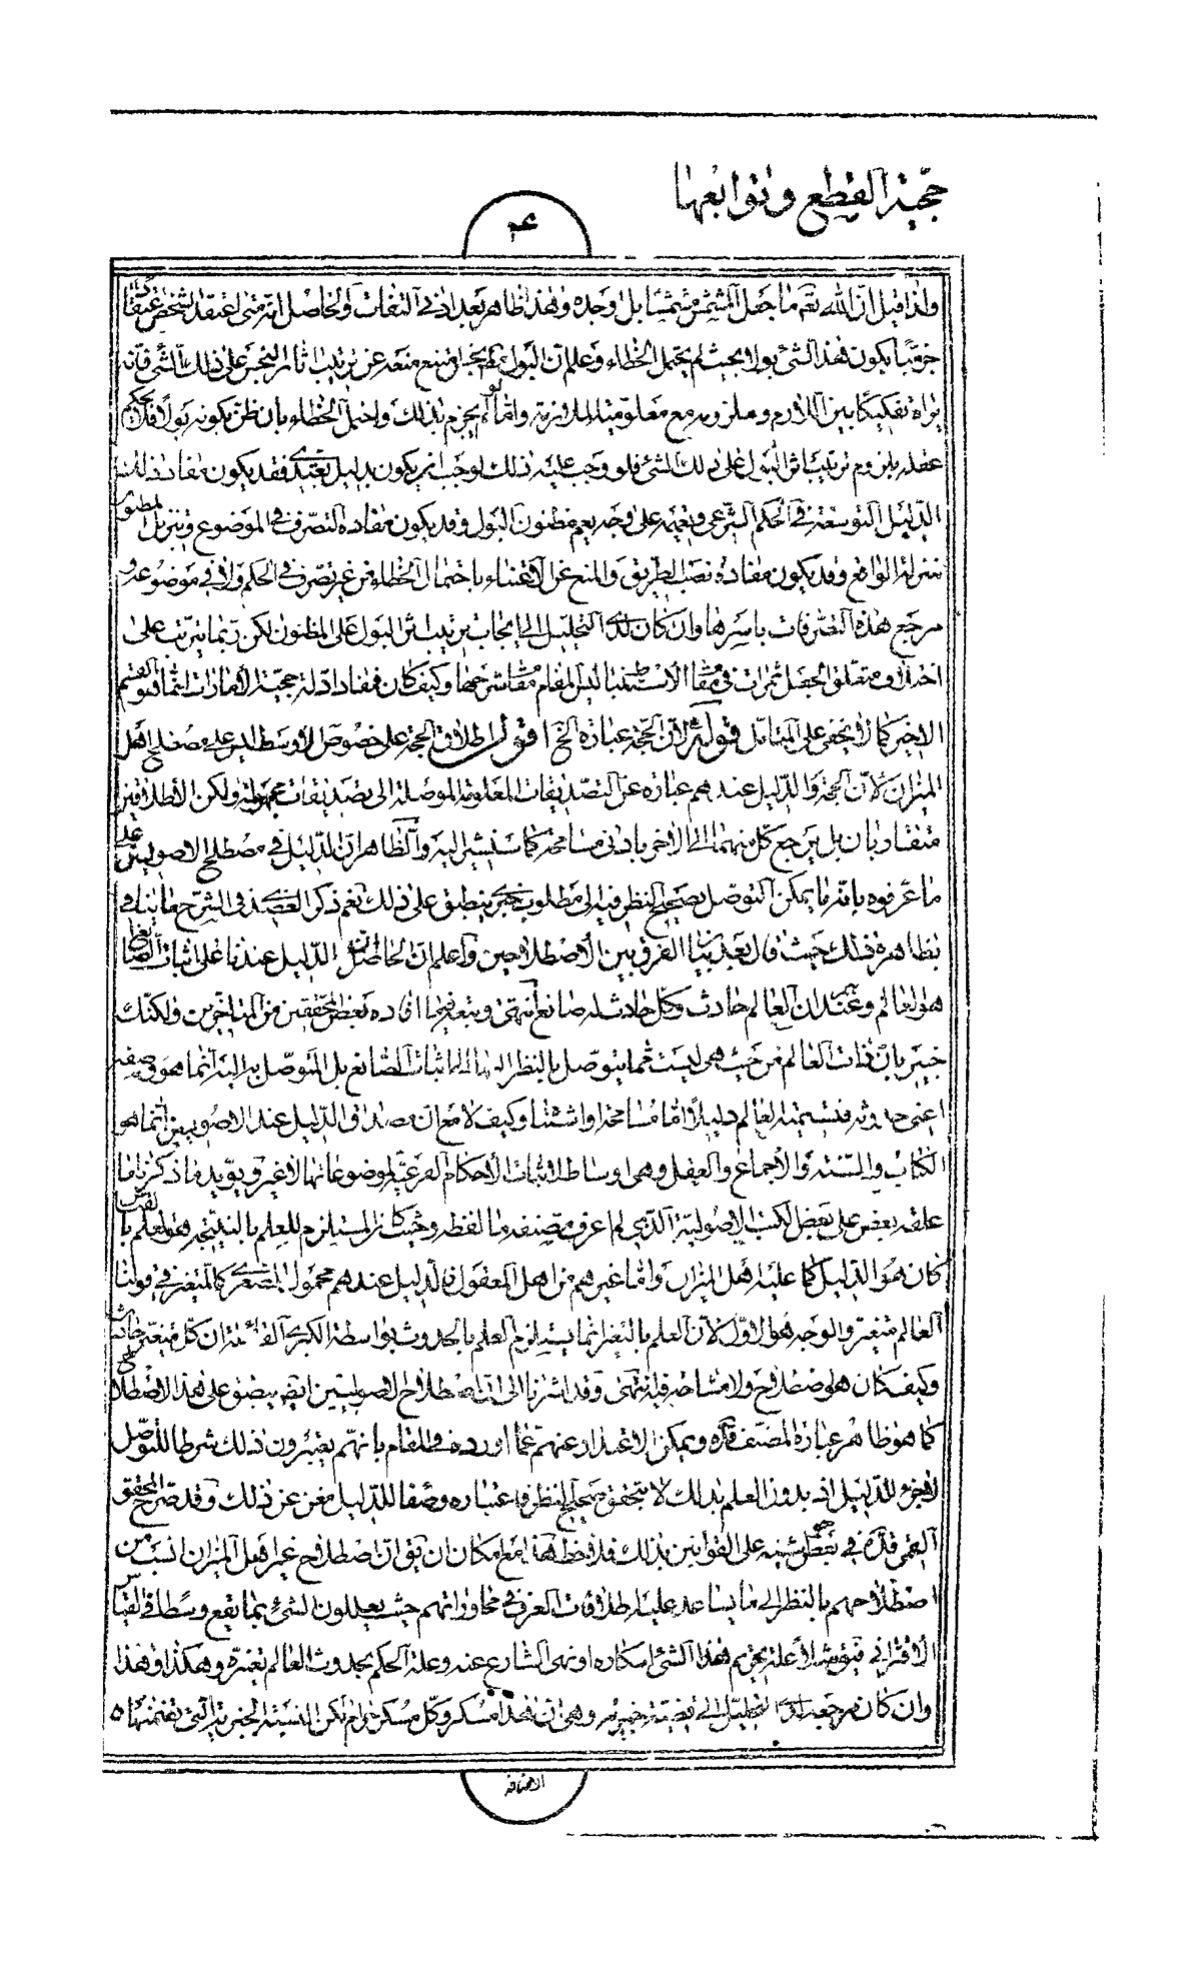 حجّية القطع وتوابعها
ع۳
ولذا قيل انّ الله تعم ما جعل المشمش مشمشا بل اوجده وهذا ظاهر بعد ادنى التفات والحاصل انّه متى اعتقد الشخص
جزميّا بكون هذا الشئ بولا بحيث لم يحتمل الخطاء وعلم انّ البول نجس امتنع منعه عن ترتيب اثار النجس على ذلك الشئ فانّه
يراه تفكيكا بين اللازم وملزومه مع معلوميّة الملازمة وامّا لو لم يجزم بذلك واحتمل الخطاء بان ظنّ بكونه بولا فلا يحكم
عقله بلزوم ترتيب اثر البول على ذلك الشئ فلو وجب عليه ذلك لوجب ان يكون بدليل تعبّدى فقد يكون مفاد ذلك
الدّليل التوسعة فى الحكم الشّرعى وتعميمه على وجه يعم مظنون البول وقد يكون مفاده التصرّف فى الموضوع وتنزيل المظنون
منزلة الواقع وقد يكون مفاده نصب الطريق والمنع عن الاعتناء باحتمال الخطاء من غير تصرّف فى الحكم ولا فى موضوعه و
مرجع هذه التصرّفات باسرها وان كان لدى التحليل الى ايجاب ترتيب اثر البول على المظنون لكن ربّما يترتب على
اختلاف متعلّق الجعل ثمرات فى مقام الاستنباط ليس المقام مقام شرحها وكيف كان فمفاد ادلّة حجيّة الأمارات انّما هو القسم
الاخير كما لا يخفى على المتأمّل قوله لانّ الحجّة عبارة الخ اقول اطلاق الحجّة على خصوص الأوسط ليس على مصطلح اهل
الميزان لانّ الحجّة والدّليل عندهم عبارة عن التصديقات المعلومة الموصلة الى تصديقات مجهولة ولكن الأطلاقين
متقاربان بل يرجع كلّ منهما الى الاخر بادنى مسامحة كما سنشير اليه والظاهر انّ الدّليل فى مصطلح الاصوليين على
ما عرّفوه بانّه ما يمكن التوصّل بصحيح النظر فيه الى مطلوب خبرى ينطبق على ذلك نعم ذكر العضدى فى الشرح ما ينافى
بظاهره ذلك حيث قال بعد بيان الفرق بين الأصطلاحين واعلم انّ الحاصل انّ الدّليل عندنا على اثبات الصّانع
هو العالم وعندهم ان العالم حادث وكلّ حادث له صانع انتهى وتبعه فيما افاده بعض المحقّقين من المتاخّرين ولكنّك
خبير بانّ ذات العالم من حيث هى ليست ممّا يتوصّل بالنظر اليها الى اثبات الصّانع بل المتوصّل به اليه انّما هو وصفه
اعنى حدوثه فتسمية العالم دليلا امّا مسامحة او اشتباه وكيف لا مع انّ مصداق الدّليل عند الاصوليين انّما هو
الكتاب والسّنة والأجماع والعقل وهى اوساط لاثبات الأحكام الفرعيّة لموضوعاتها لا غير ويؤيّد ما ذكرنا ما
علّقه بعض على بعض الكتب الاصوليّة الّذى لم اعرف مصنّفه ما لفظه وحيث كان المستلزم للعلم بالنتيجة هو العلم بالقياس
كان هو الدّليل كما عليه اهل الميزان وامّا غيرهم من اهل المعقول فالدّليل عندهم محمول الصّغرى كالمتغيّر فى قولنا
العالم متغيّر والوجه هو الاوّل لانّ العلم بالتغيّر انّما يستلزم العلم بالحدوث بواسطة الكبرى القائلة ان كلّ متغيّر حادث
وكيف كان هو اصطلاح ولا مشاحة فيه انتهى وقد اشرنا الى انّ اصطلاح الاصوليّين ايضا ينطبق على هذا الاصطلاح
كما هو ظاهر عبارة المصنّف قدّه ويمكن الاعتذار عنهم عمّا اورده فى المقام بانّهم يعتبرون ذلك شرطا للتوصّل
لا جزء للدّليل اذ بدون العلم بذلك لا يتحقق صحيح النظر واعتباره وصفا للدّليل مغن عن ذلك وقد صرّح المحقق
القمى قدّه فى بعض حواشيه على القوانين بذلك فلاحظ هذا مع امكان ان يقال انّ اصطلاح غير اهل الميزان انسب من
اصطلاحهم بالنظر الى ما يساعد عليه اطلاقات العرف فى محاوراتهم حيث يعلّلون الشئ بما يقع وسطا فى القياس
الأقترانى فيق مثلا علّة تحريم هذا الشئ اسكاره او نهى الشارع عنه وعلّة الحكم بحدوث العالم تغيّره وهكذا وهذا
وان كان مرجعه لدى التحليل الى قضيّة خبريّة وهى ان هذا مسكر وكلّ مسكر حرام لكن النّسبة الخبرية الّتى تضمّنها ه
الاضافة